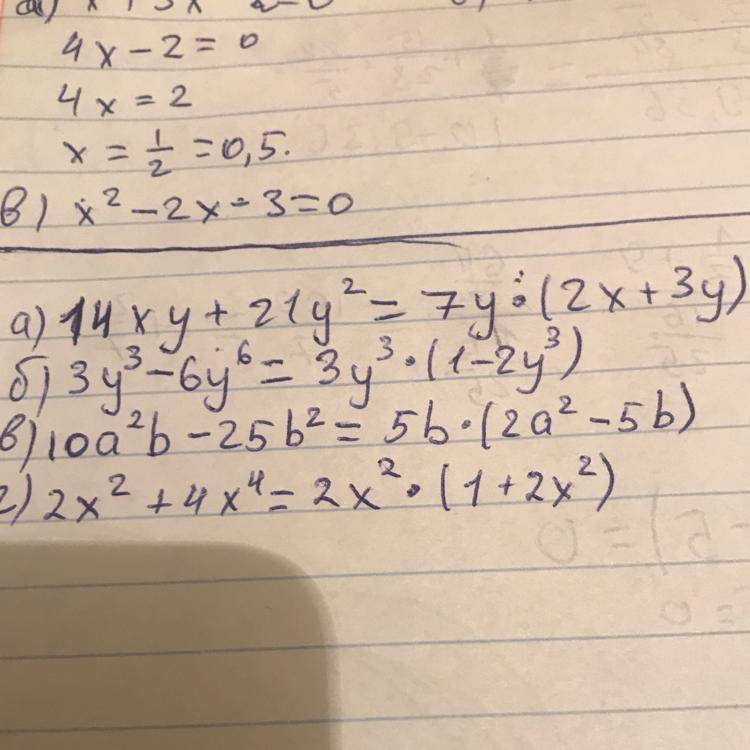 4x - 2 = 0
4x = 2
x = 1/2 = 0,5.
в) x² - 2x - 3 = 0
а) 14xy + 21y² = 7y · (2x + 3y)
б) 3y³ - 6y⁶ = 3y³ · (1 - 2y³)
в) 10a²b - 25b² = 5b · (2a² - 5b)
г) 2x² + 4x⁴ = 2x² · (1 + 2x²)